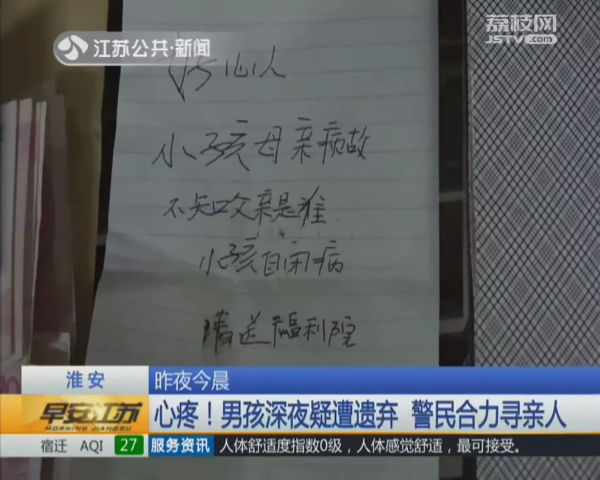 江苏公共·新闻
荔枝网
JSTV.com
好心人
小孩母亲病故
不知父亲是谁.
小孩自闭病
请送福利院
淮安
昨夜今晨
早安江苏
MORNING JIANGSU
心疼！男孩深夜疑遭遗弃 警民合力寻亲人
宿迁 AQI 27
服务资讯
人体舒适度指数0级，人体感觉舒适，最可接受。